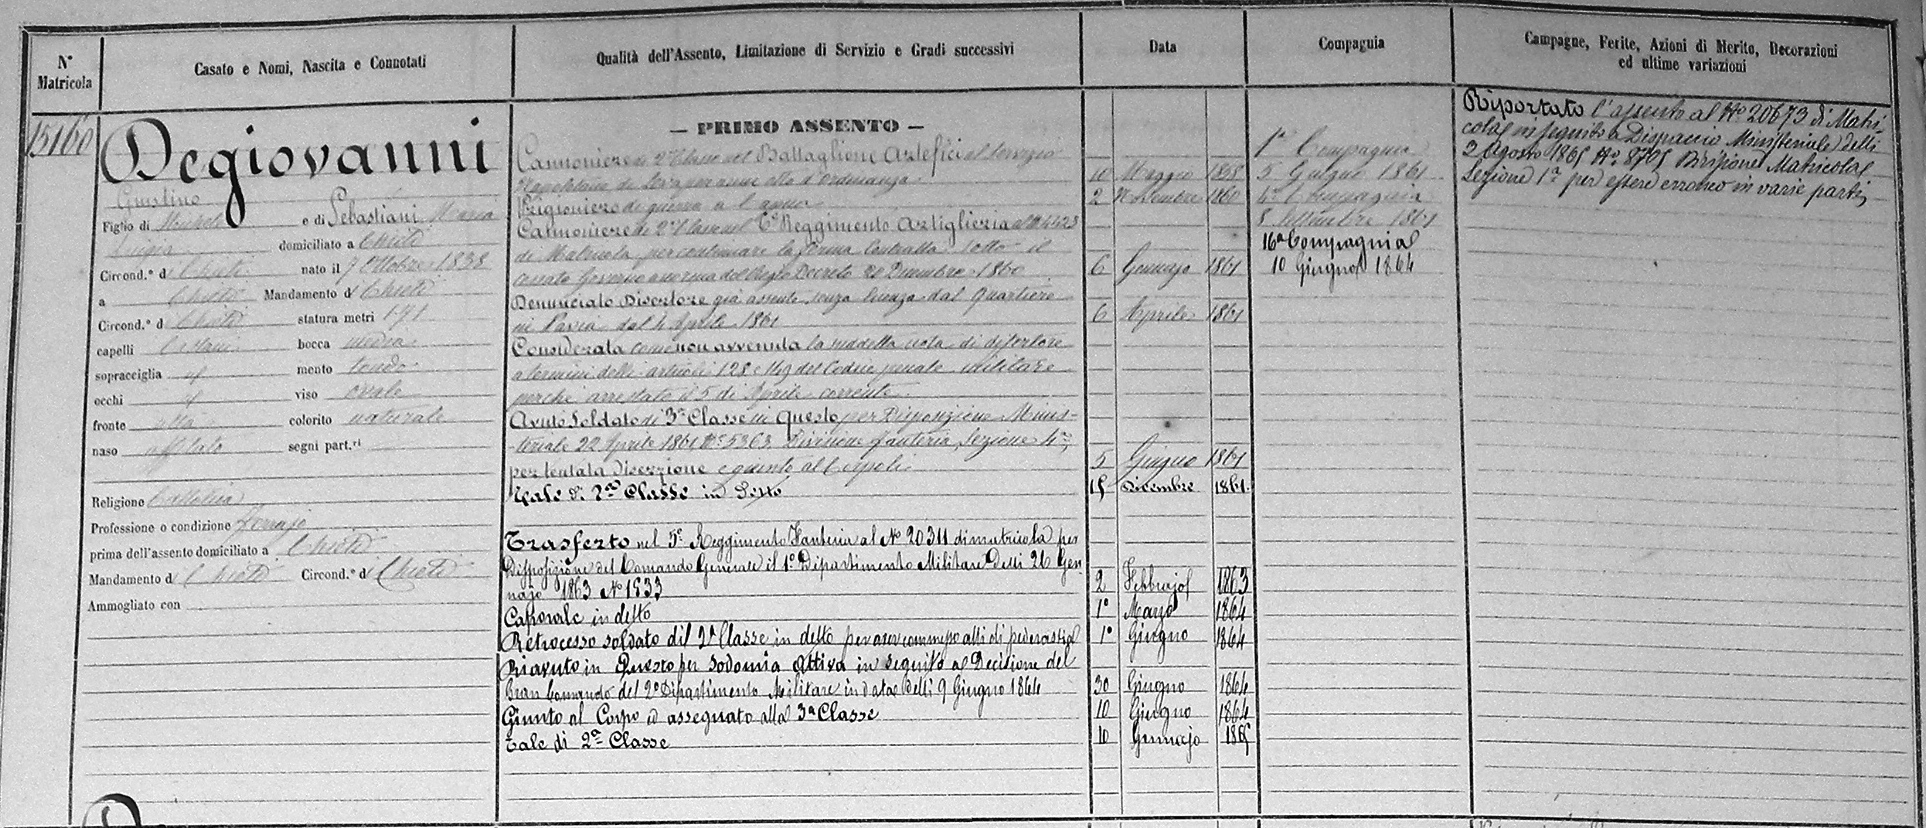 N° Matricola
Casato e Nomi, Nascita e Connotati
Qualità dell'Assento, Limitazione di Servizio e Gradi successivi
Data
Compagnia
Campagne, Ferite, Azioni di Merito, Decorazioni
ed ultime variazioni
15160
Degiovanni
Giustino
Figlio di Michele e di Sebastiani Maria
Luigia domiciliato a Chieti
Circond.° di Chieti nato il 7 Ottobre 1838
a Chieti Mandamento di Chieti
Circond.° di Chieti statura metri 1.71
capelli Castani bocca media
sopracciglia id mento tondo
occhi id viso ovale
fronte alta colorito naturale
naso affilato segni part.ri
Religione Cattolica
Professione o condizione Ferrajo
prima dell'assento domiciliato a Chieti
Mandamento di Chieti Circond.° di Chieti
Ammogliato con
— PRIMO ASSENTO —
Cannoniere di 2ª Classe nel Battaglione Artefici al servizio
Napoletano di Leva per anni otto d'ordinanza 10 Maggio 1858
Prigioniero di guerra a Capua 2 Novembre 1860
Cannoniere di 2ª Classe nel Reggimento Artiglieria al N 4423
di Matricola per continuare la ferma contratta sotto il
cessato Governo a norma del Regio Decreto 20 Dicembre 1860 6 Gennajo 1861
Denunciato Disertore già assente senza licenza dal Quartiere
in Pavia dal 4 Aprile 1861 6 Aprile 1861
Considerata come non avvenuta la suddetta nota di disertore
a termini delli articoli 128 e 149 del Codice penale militare
perché arrestato il 5 di Aprile corrente
Avuto Soldato di 3ª Classe in Questo per Disposizione Minis-
-teriale 22 Aprile 1861, N° 5363 Divisione fanteria, Sezione 4ª,
per tentata diserzione e giunto al Corpo li 5 Giugno 1861
Tale di 2ª Classe in Detto 15 Dicembre 1861
Trasferto nel 5° Reggimento Fanteria al N° 20311 di matricola per
Disposizione del Comando Generale il 1° Dipartimento Militare Delli 26 Gen-
najo 1863 N° 1933 2 Febbrajo 1863
Caporale in detto 1° Marzo 1864
Retrocesso soldato di 2ª Classe in detto per aver commesso atti di pederastia 1° Giugno 1864
Riavuto in Questo per sodomia attiva in seguito a Decisione del
Gran Comando del 2° Dipartimento Militare in data delli 9 Giugno 1864 30 Giugno 1864
Giunto al Corpo ed assegnato alla 3ª Classe 10 Giugno 1864
Tale di 2ª Classe 10 Gennajo 1865
1ª Compagnia
5 Giugno 1861
4ª Compagnia
8 Settembre 1861
16ª Compagnia
10 Giugno 1864
Riportato l'assento al N° 20673 di Matri-
cola in seguito a Dispaccio Ministeriale delli
2 Agosto 1865 N° 8705 Divisione Matricola
Sezione 1ª per essere erroneo in varie parti